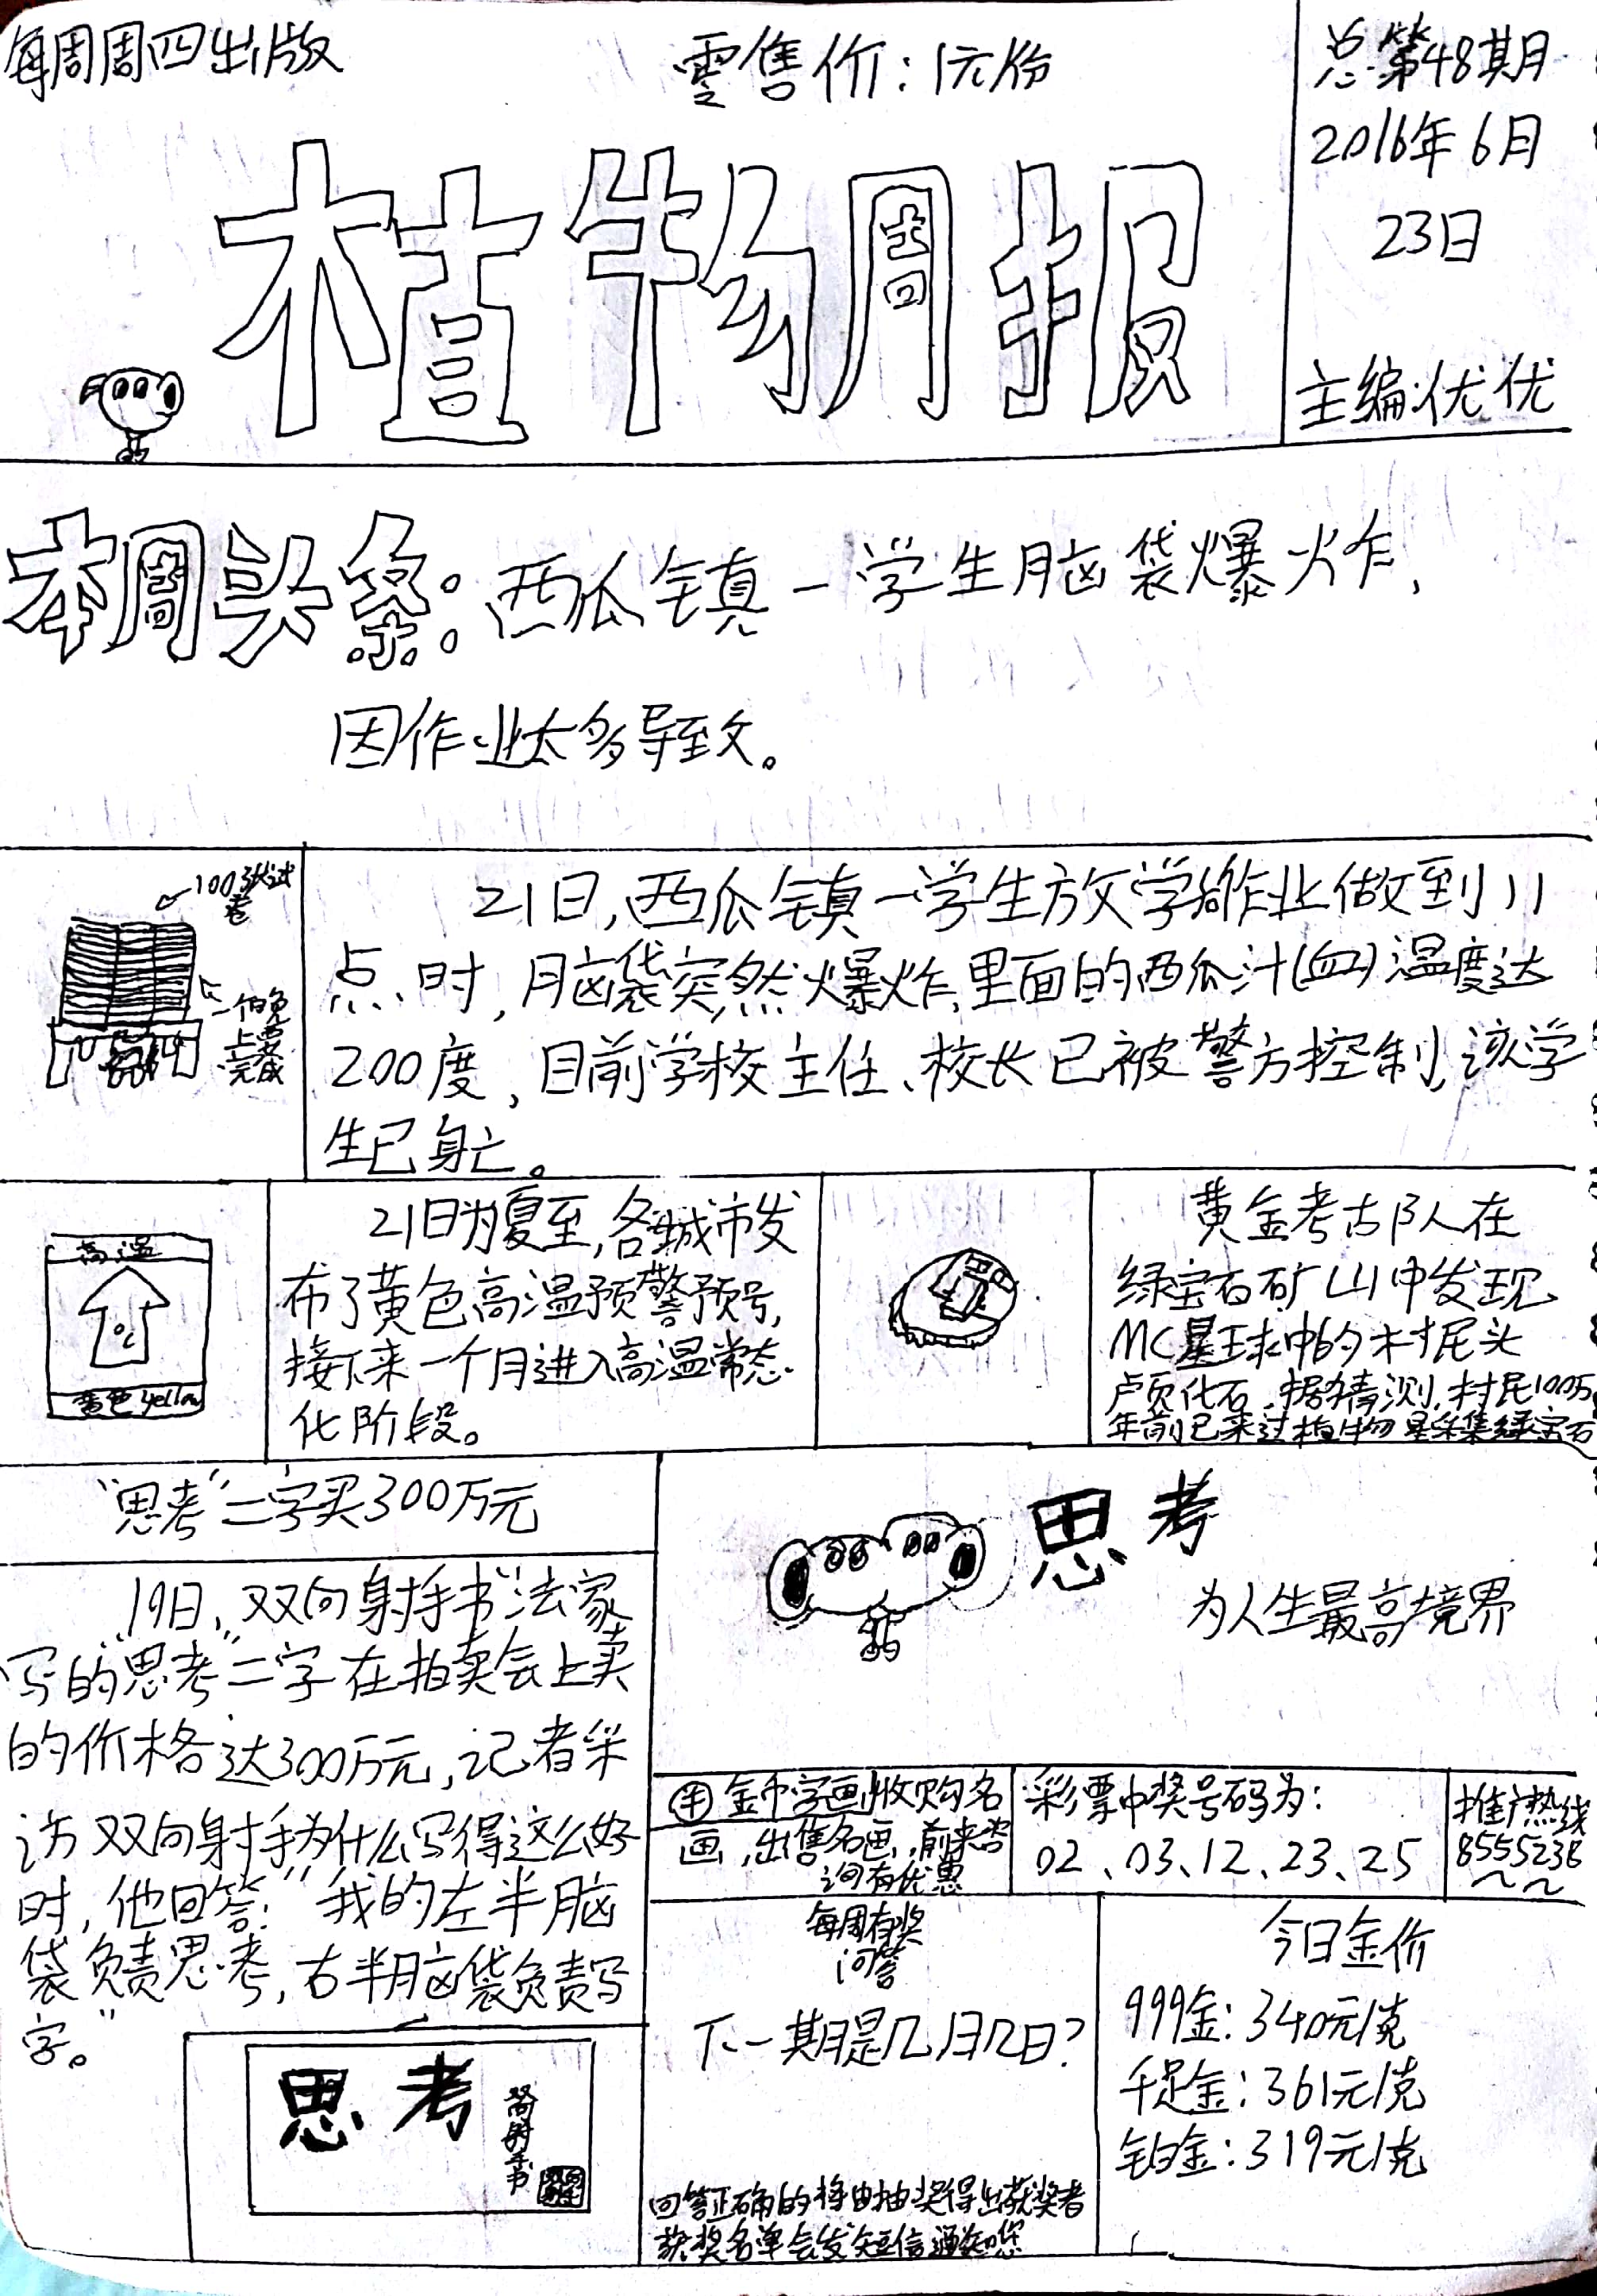 每周周四出版
零售价：1元/份
总第48期
2016年6月
23日
主编:优优
植物周报
本周头条：西瓜镇一学生脑袋爆炸，
因作业太多导致。
100张试
卷
一个晚
上要
完成
21日，西瓜镇一学生放学作业做到11
点时，脑袋突然爆炸，里面的西瓜汁(血)温度达
200度，目前学校主任、校长已被警方控制，该学
生已身亡。
高温
℃
黄色yellow
21日为夏至，各城市发
布了黄色高温预警预号，
接下来一个月进入高温常态
化阶段。
黄金考古队人在
绿宝石矿山中发现
MC星球中的村民头
卢页化石，据猜测，村民100万
年前已来过植物星采集绿宝石
“思考”二字买300万元
19日，双向射手书法家
写的“思考”二字在拍卖会上卖
的价格达300万元，记者采
访双向射手为什么写得这么好
时，他回答：“我的左半脑
袋负责思考，右半脑袋负责写
字。”
思考
双向射手书
思考
为人生最高境界
金币字画收购名
画，出售名画，前来咨
询有优惠
彩票中奖号码为：
02、03、12、23、25
推广热线
8555238
～～
每周有奖
问答
下一期是几月几日？
回答正确的将由抽奖得出获奖者
获奖名单会发短信通知您
今日金价
999金：340元/克
千足金：361元/克
铂金：319元/克